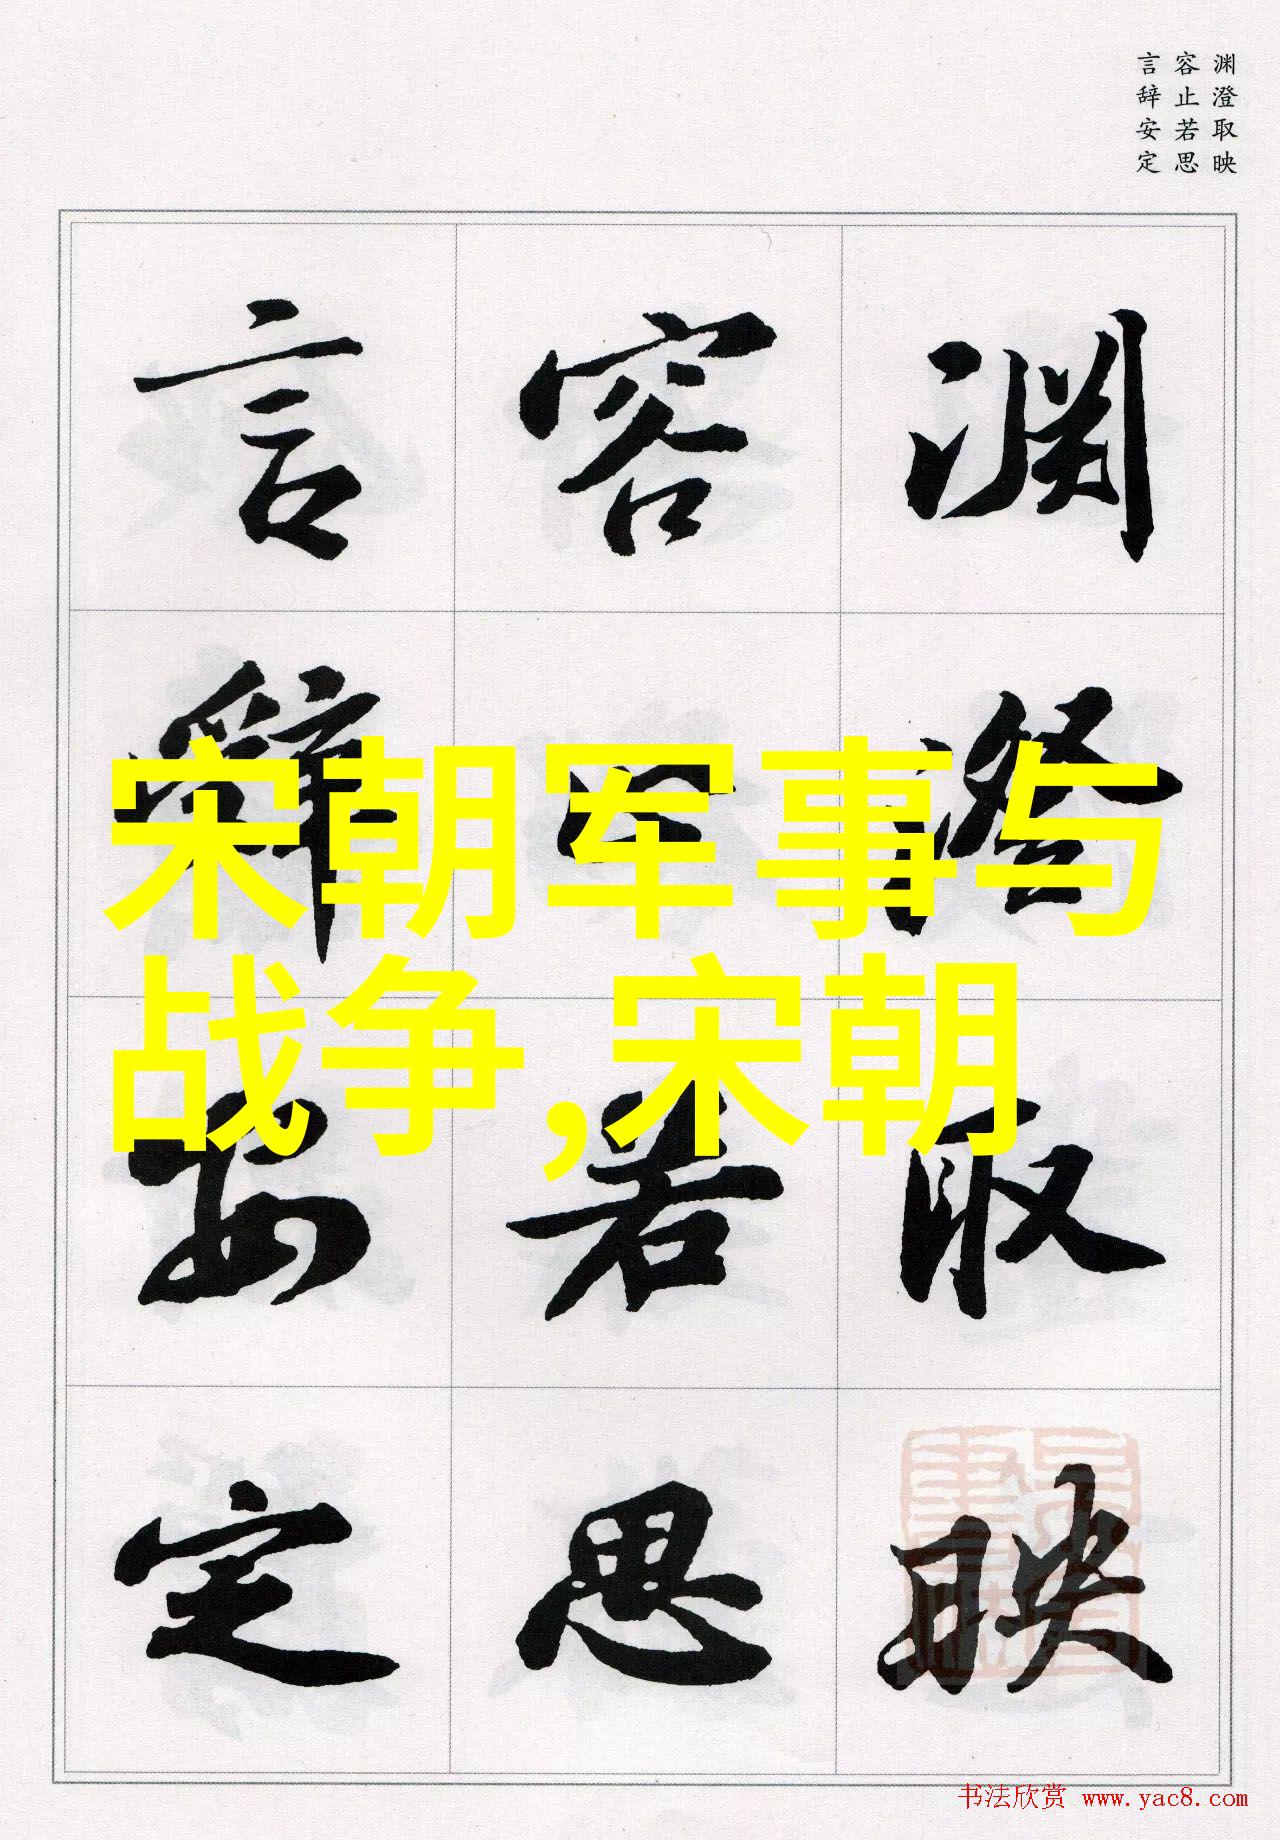 渊澄取映
容止若思
言辞安定
渊澄取映
容止若思
言辞安定
宋朝军事与
战争,宋朝
书法欣赏 www.yac8.com